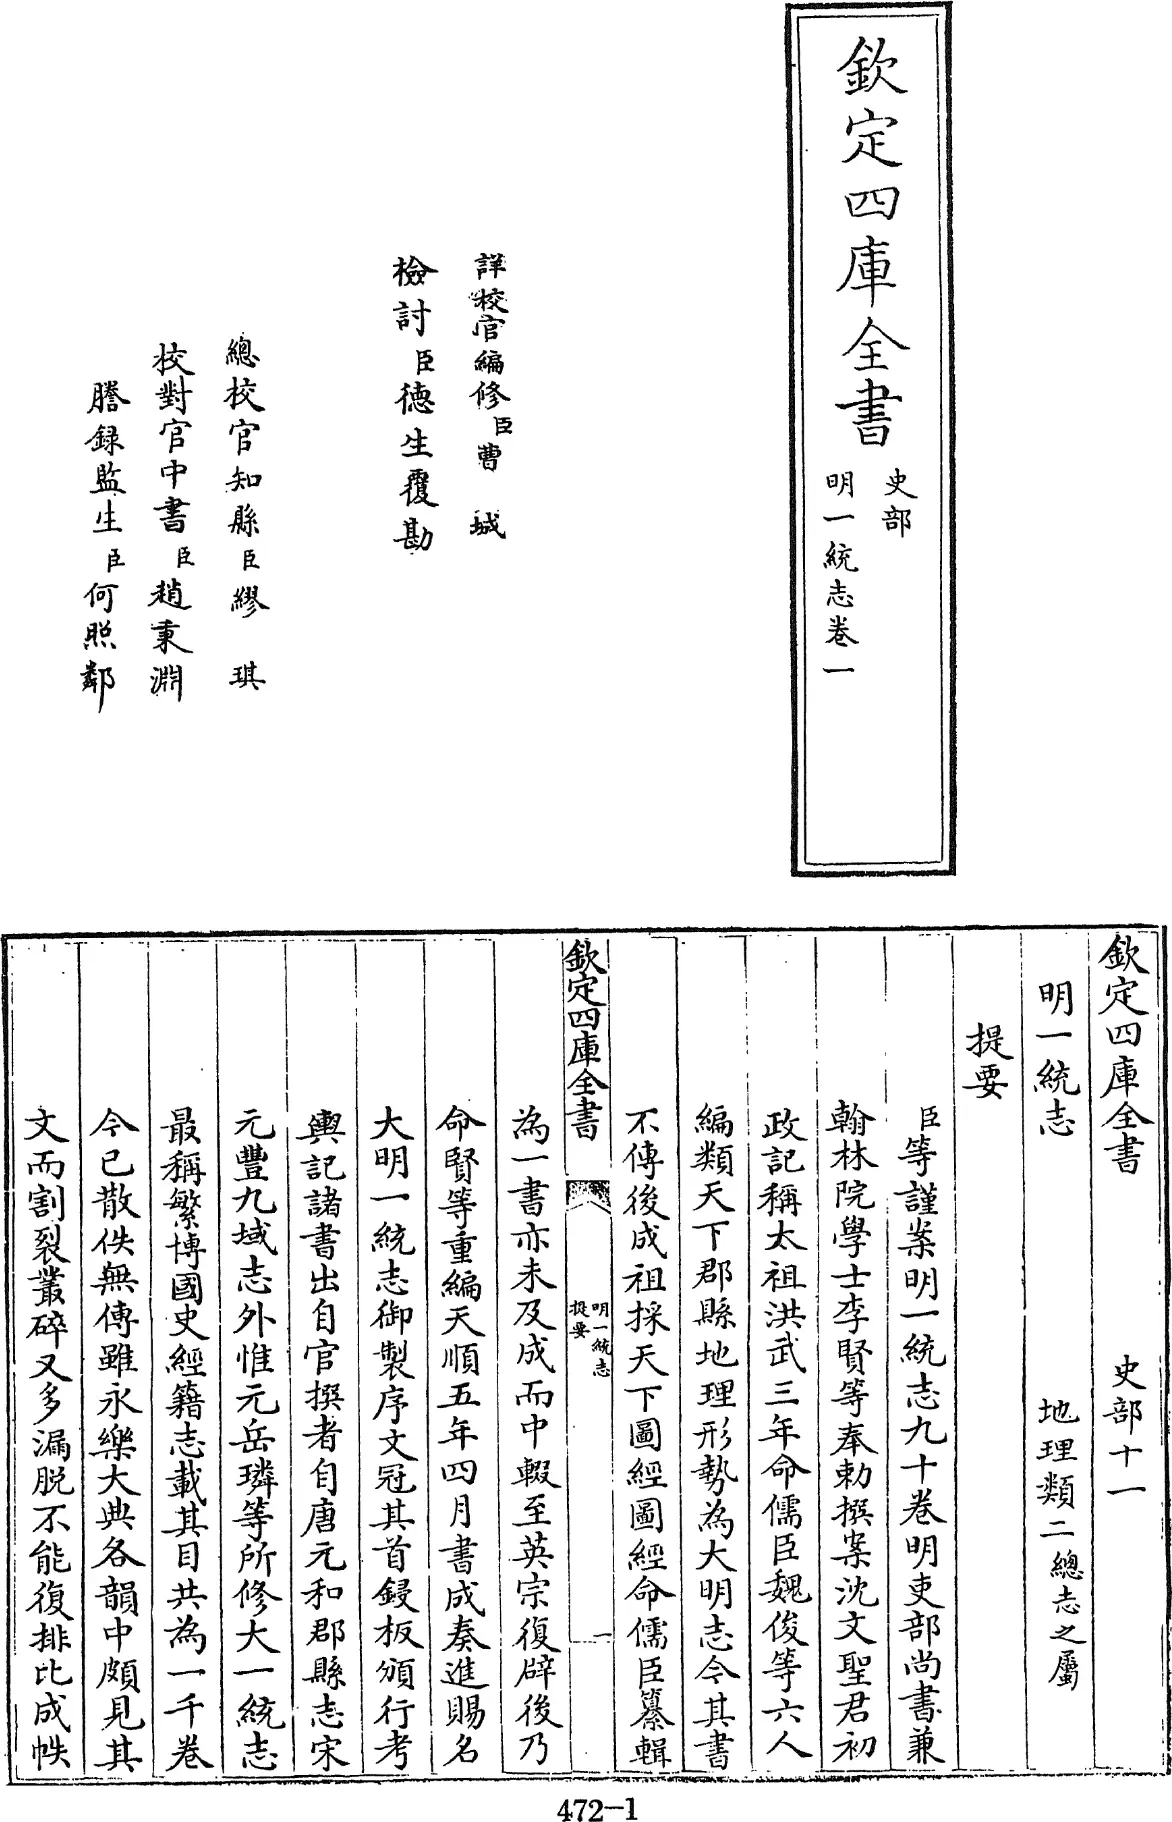 欽定四庫全書
史部
明一統志卷一
詳校官編修臣曹 城
檢討臣德生覆勘
總校官知縣臣繆 琪
校對官中書臣趙秉淵
謄録監生臣何照鄰
欽定四庫全書 史部十一
明一統志 地理類二總志之屬
提要
臣等謹案明一統志九十卷明吏部尚書兼
翰林院學士李賢等奉勅撰案沈文聖君初
政記稱太祖洪武三年命儒臣魏俊等六人
編類天下郡縣地理形勢為大明志今其書
不傳後成祖採天下圖經圖經命儒臣纂輯
欽定四庫全書
明一統志
提要
一
為一書亦未及成而中輟至英宗復辟後乃
命賢等重編天順五年四月書成奏進賜名
大明一統志御製序文冠其首鋟板頒行考
輿記諸書出自官撰者自唐元和郡縣志宋
元豐九域志外惟元岳璘等所修大一統志
最稱繁博國史經籍志載其目共為一千卷
今已散佚無傳雖永樂大典各韻中頗見其
文而割裂叢碎又多漏脫不能復排比成帙
472-1